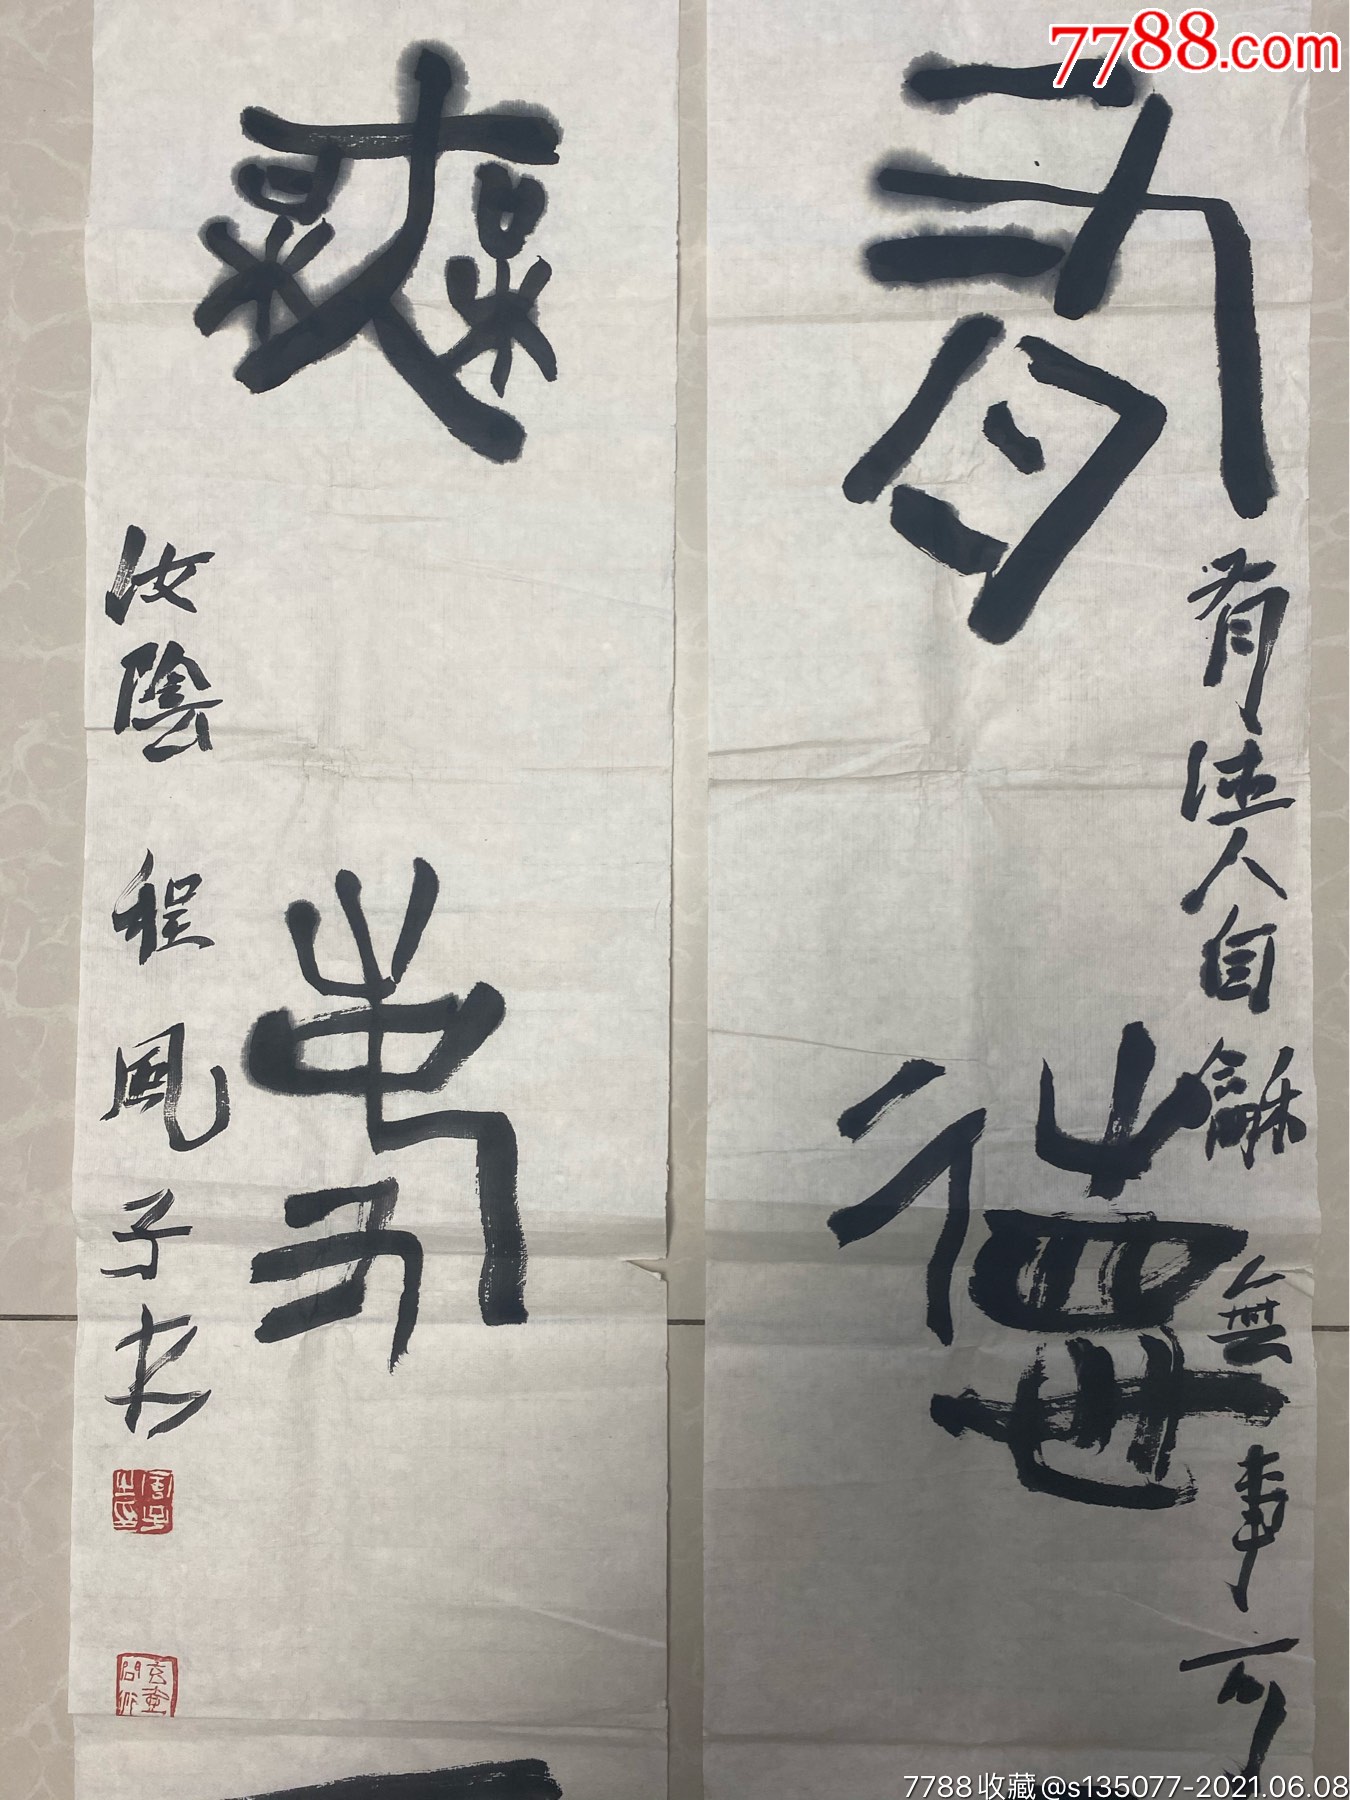 7788.com
有德
有德人自龢無事可
無事
汝陰 程風子书
7788收藏@s135077-2021.06.08